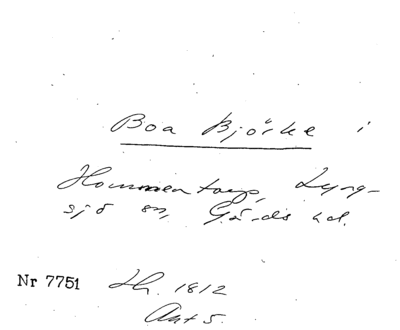 Boa Björke i
Hommentorp, Lyng-
sjö sn, Gärds hd.
Nr 7751 Hr. 1812
Akt 5.